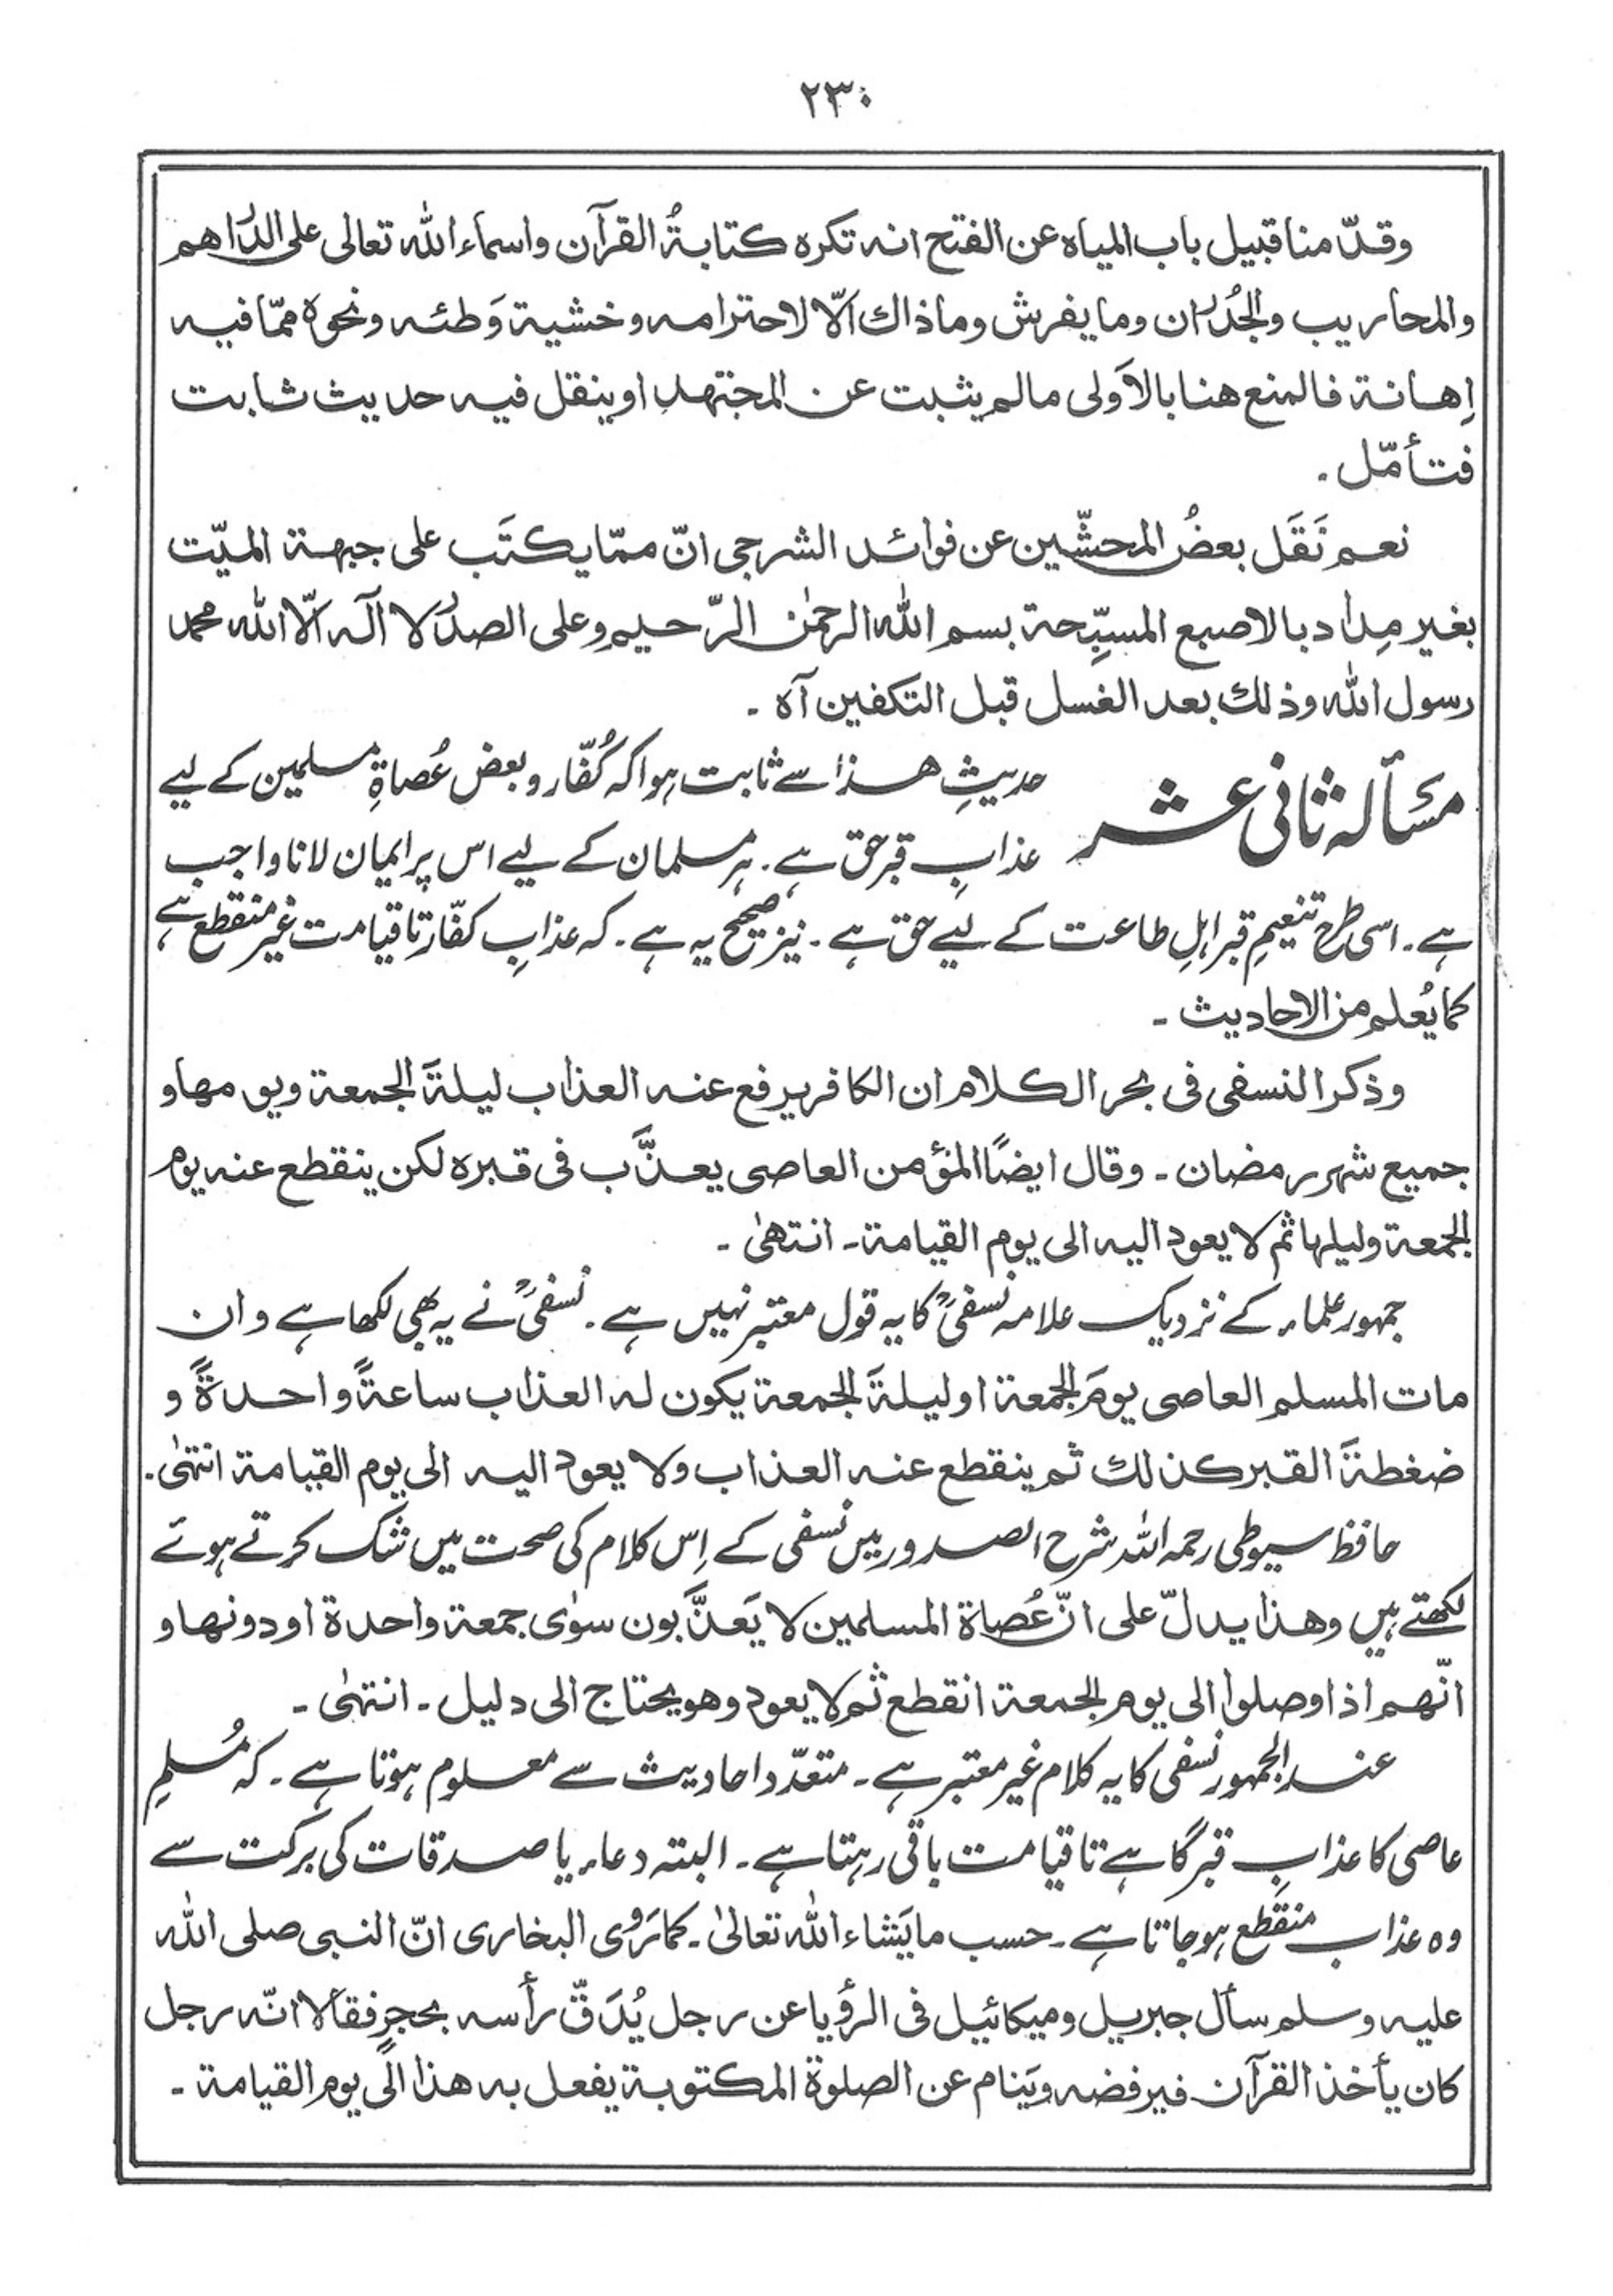 ۲۳۰
وقدّمنا قبیل باب المیاہ عن الفتح انہ تکرہ کتابۃُ القرآن واسماء اللہ تعالی علی الدَراھم
والمحاریب والجُدران وما یفرش وما ذاك الّا لاحترامہ وخشیۃ وَطئہ ونحوہ ممّا فیہ
اِھانۃ فالمنع ھنا بالاَولی ما لم یثبت عن المجتھد او ینقل فیہ حدیث ثابت
فتأمّل ۔
نعم نَقَل بعضُ المحشّین عن فوائد الشرجی انّ ممّا یکتَب علی جبھۃ المیّت
بغیر مِداد بالاصبع المسبِّحۃ بسم اللہ الرحمٰن الرّحیم وعلی الصدر لا آلہ الّا اللہ محمد
رسول اللہ وذلك بعد الغسل قبل التکفین آہ ۔
مسَألہ ثانی عشر
حدیثِ ھذا سے ثابت ہوا کہ کُفّار و بعض عُصاۃِ مسلمین کے لیے
عذابِ قبر حق ہے۔ ہر مسلمان کے لیے اس پر ایمان لانا واجب
ہے۔ اسی طرح تنعیمِ قبر اہلِ طاعت کے لیے حق ہے۔ نیز صحیح یہ ہے۔ کہ عذابِ کفّار تا قیامت غیر منقطع ہے
کما یُعلم من الاحادیث ۔
وذکر النسفی فی بحر الکلام ان الکافر یرفع عنہ العذاب لیلۃَ الجمعۃ ویومھا و
جمیع شھر رمضان ۔ وقال ایضًا المؤمن العاصی یعذَّب فی قبرہ لکن ینقطع عنہ یوم
الجمعۃ ولیلہا ثم لا یعود الیہ الی یوم القیامۃ ۔ انتھیٰ ۔
جمہور علماء کے نزدیک علامہ نسفیؒ کا یہ قول معتبر نہیں ہے۔ نسفیؒ نے یہ بھی لکھا ہے و ان
مات المسلم العاصی یومَ الجمعۃ او لیلۃَ الجمعۃ یکون لہ العذاب ساعۃً واحدۃً و
ضغطۃَ القبر کذلك ثم ینقطع عنہ العذاب ولا یعود الیہ الی یوم القیامۃ انتھیٰ۔
حافظ سیوطی رحمہ اللہ شرح الصدور میں نسفی کے اِس کلام کی صحت میں شک کرتے ہوئے
لکھتے ہیں وھذا یدلّ علی انّ عُصاۃ المسلمین لا یَعذَّبون سوٰی جمعۃ واحدۃ او دونھا و
انّھم اذا وصلوا الی یوم الجمعۃ انقطع ثم لا یعود وھو یحتاج الی دلیل ۔ انتھیٰ ۔
عند الجمہور نسفی کا یہ کلام غیر معتبر ہے۔ متعدّد احادیث سے معلوم ہوتا ہے۔ کہ مُسلمِ
عاصی کا عذابِ قبر گاہے تا قیامت باقی رہتا ہے۔ البتہ دعاء یا صدقات کی برکت سے
وہ عذاب منقطع ہوجاتا ہے۔ حسب ما یَشاء اللہ تعالیٰ۔ کما رَوٰی البخاری انّ النبی صلی اللہ
علیہ وسلم سأل جبریل ومیکائیل فی الرؤیا عن رجل یُدَقّ رأسہ بحجرٍ فقالا انّہ رجل
کان یأخذ القرآن فیرفضہ ویَنام عن الصلوۃ المکتوبۃ یفعل بہ ھذا الی یوم القیامۃ ۔